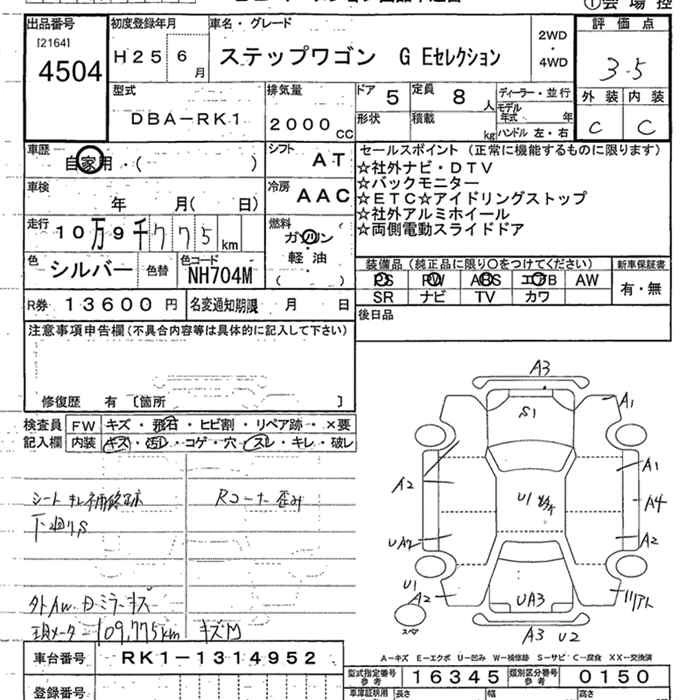 ①会場控
出品番号 初度登録年月 車名・グレード 評価点
[2164]
4504
H25 6月
ステップワゴン G Eセレクション
2WD・4WD
3.5
型式 排気量 ドア 5 定員 8人 ディーラー・並行
DBA-RK1 2000cc 形状 積載 kg モデル年式 年
ハンドル 左・右
外装 内装
C C
車歴 自家用・( ) シフト AT
セールスポイント (正常に機能するものに限ります)
☆社外ナビ・DTV
☆バックモニター
☆ETC☆アイドリングストップ
☆社外アルミホイール
☆両側電動スライドドア
車検 年 月( 日) 冷房 AAC
走行 10万9千775km 燃料 ガソリン・軽油
( )
色 シルバー 色替 色コード NH704M
装備品 (純正品に限り○をつけてください) 新車保証書
PS PW ABS エアB AW 有・無
SR ナビ TV カワ
R券 13600円 名変通知期限 月 日
後日品
注意事項申告欄(不具合内容等は具体的に記入して下さい)
修復歴 有〔箇所 〕
検査員記入欄 FW キズ・飛石・ヒビ割・リペア跡・×要
内装 キズ・汚レ・コゲ・穴・スレ・キレ・破レ
シートキレ補修跡 Rコーナー歪み
下廻りS
外AW Dミラーキズ
現メーター109,775km キズM
A3
S1
A1
A1
A2
U1
A4
UA2
A2
U1
A2
UA3
リアト
スペア
A3 U2
A-キズ E-エクボ U-凹み W-検修跡 S-サビ C-腐食 XX-交換済
車台番号 RK1-1314952
型式指定番号参考 16345 類別区分番号参考 0150
登録番号
長さ 幅 高さ